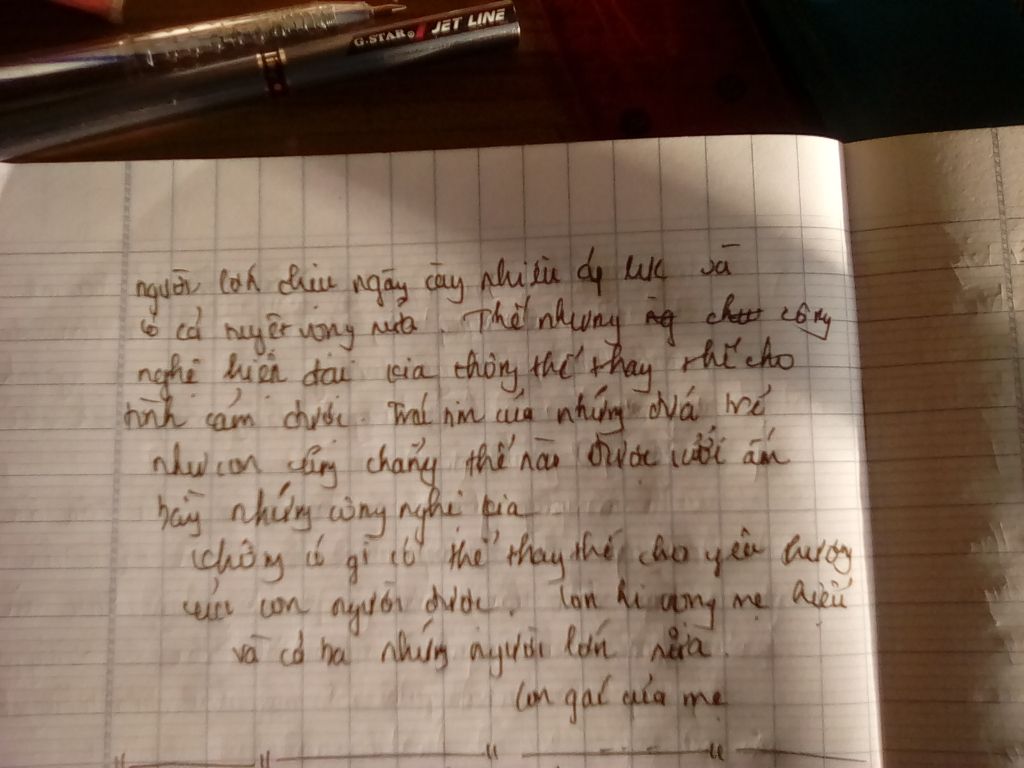 G-STAR® JET LINE
người lớn chịu ngày càng nhiều áp lực và
có cả tuyệt vọng nữa. Thế nhưng công
nghệ hiện đại kia không thể thay thế cho
tình cảm được. Trái tim của những đứa trẻ
như con cũng chẳng thể nào được sưởi ấm
bằng những công nghệ kia
Không có gì có thể thay thế cho yêu thương
của con người được. Con hi vọng mẹ hiểu
và cả ba những người lớn nữa.
Con gái của mẹ